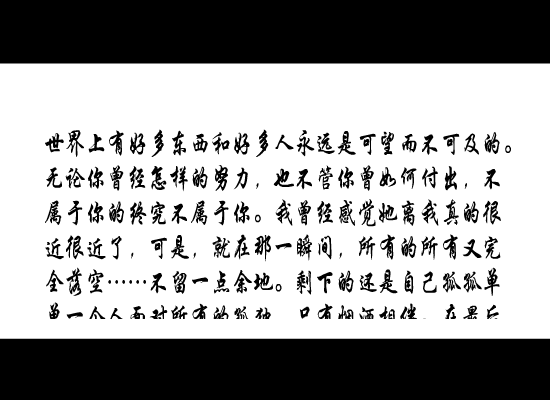 世界上有好多东西和好多人永远是可望而不可及的。
无论你曾经怎样的努力，也不管你曾如何付出，不
属于你的终究不属于你。我曾经感觉她离我真的很
近很近了，可是，就在那一瞬间，所有的所有又完
全落空……不留一点余地。剩下的还是自己孤孤单
单一个人面对所有的孤独。只有烟酒相伴。在最后